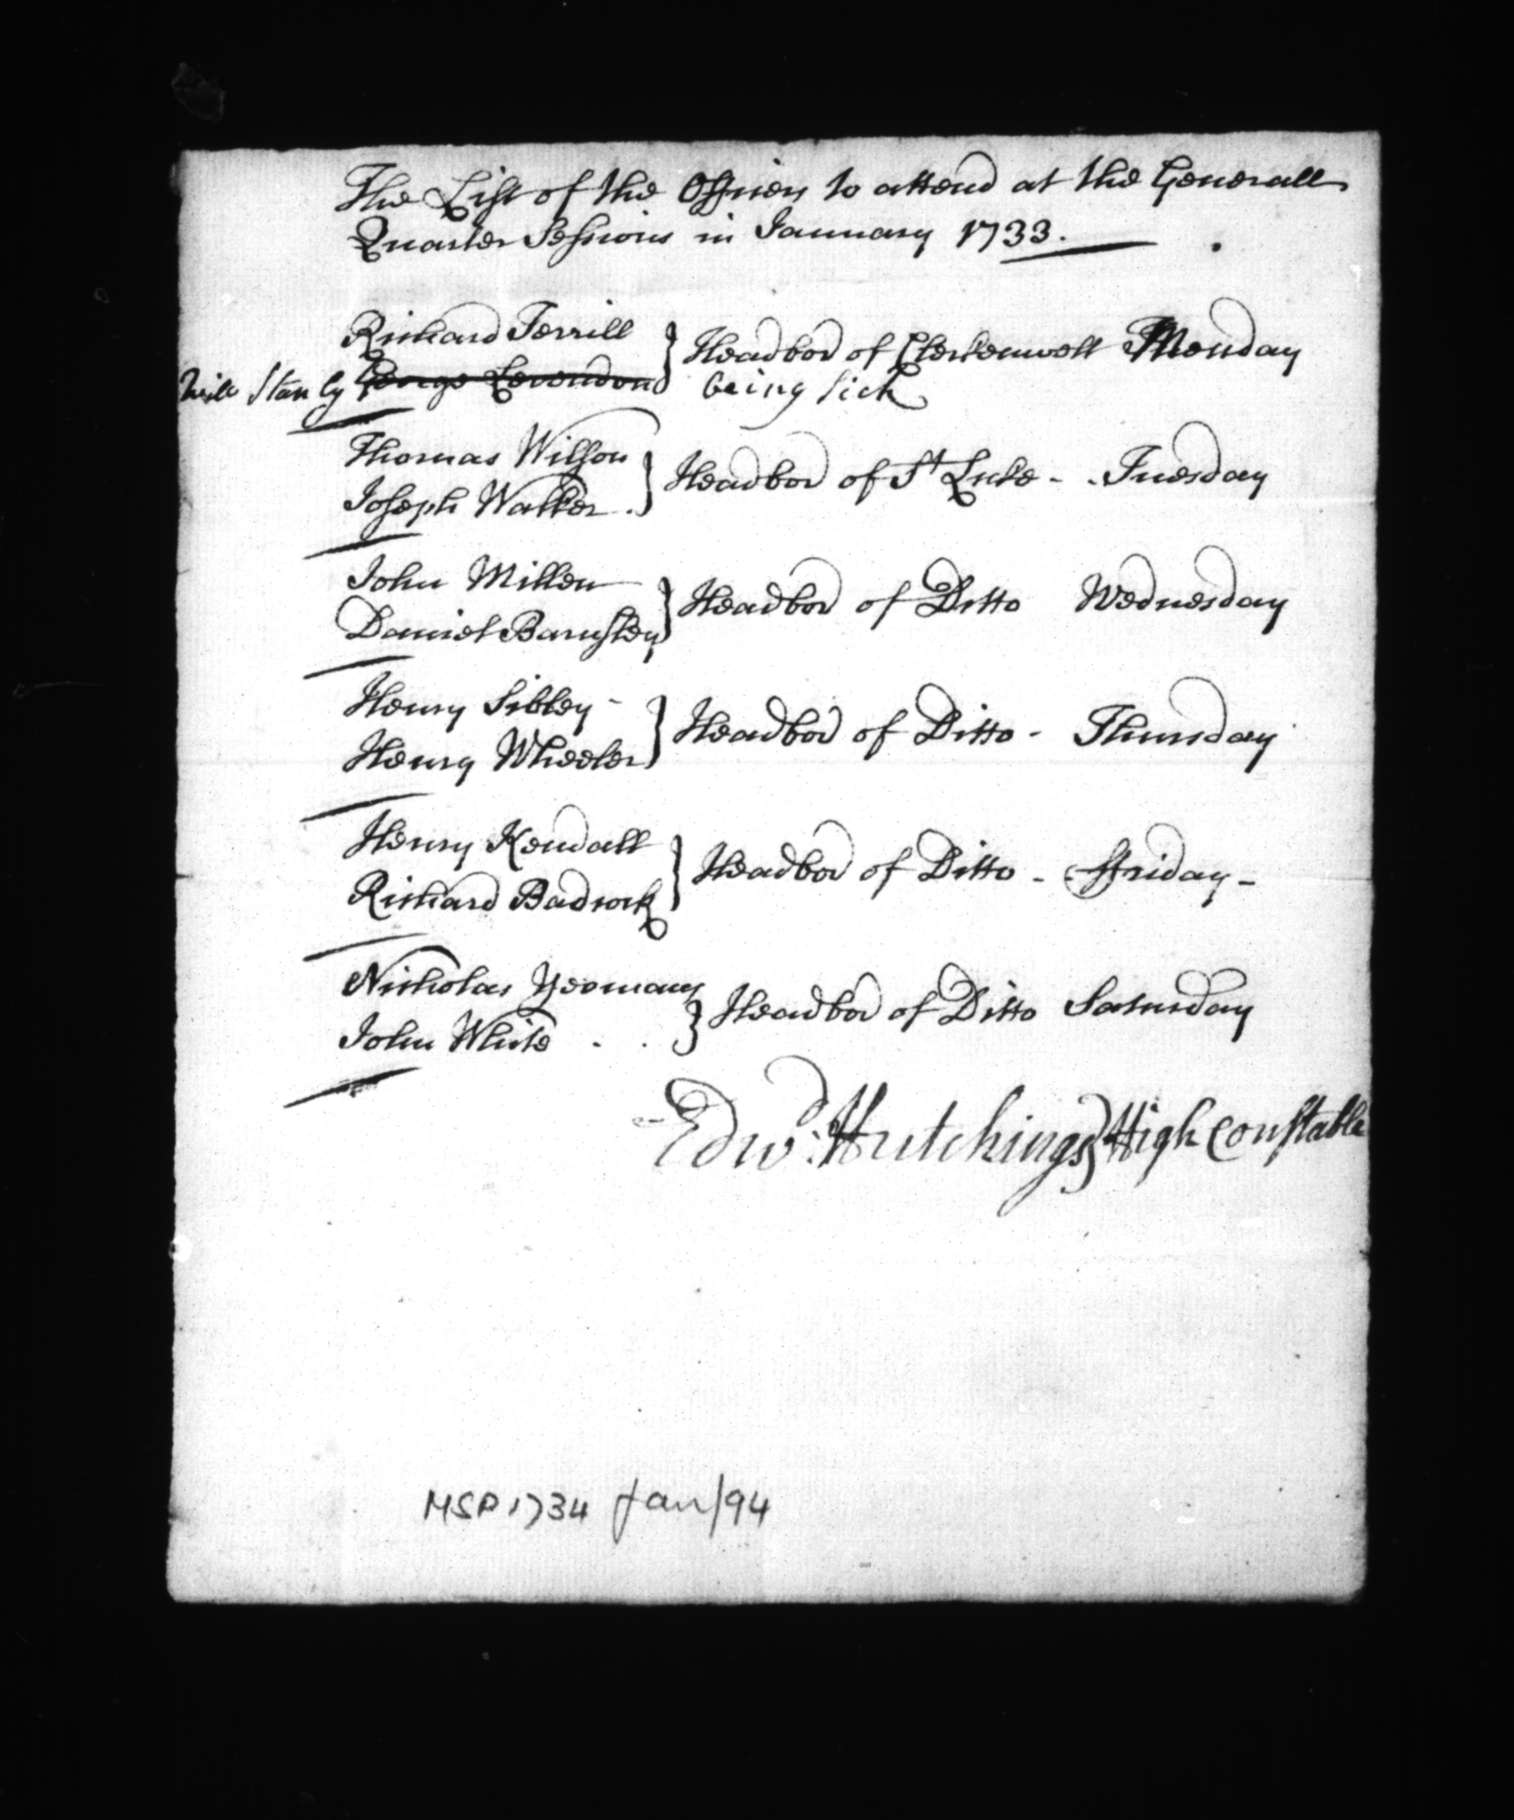 The List of the Officers to attend at the Generall
Quarter Sessions in January 1733.
Richard Terrill } Headbor of Clerkenwell Monday
Will Stanly George Levendon being sick
Thomas Wilson
Joseph Walker } Headbor of St Luke - - Tuesday
John Miller
Daniel Barnsley } Headbor of Ditto Wednesday
Henry Sibley -
Henry Wheeler } Headbor of Ditto - Thursday
Henry Kendall
Richard Badrock } Headbor of Ditto - ffriday -
Nicholas Yeomans
John White . . } Headbor of Ditto Saturday
Edwd: Hutchings High Constable
MSP 1734 Jan/94